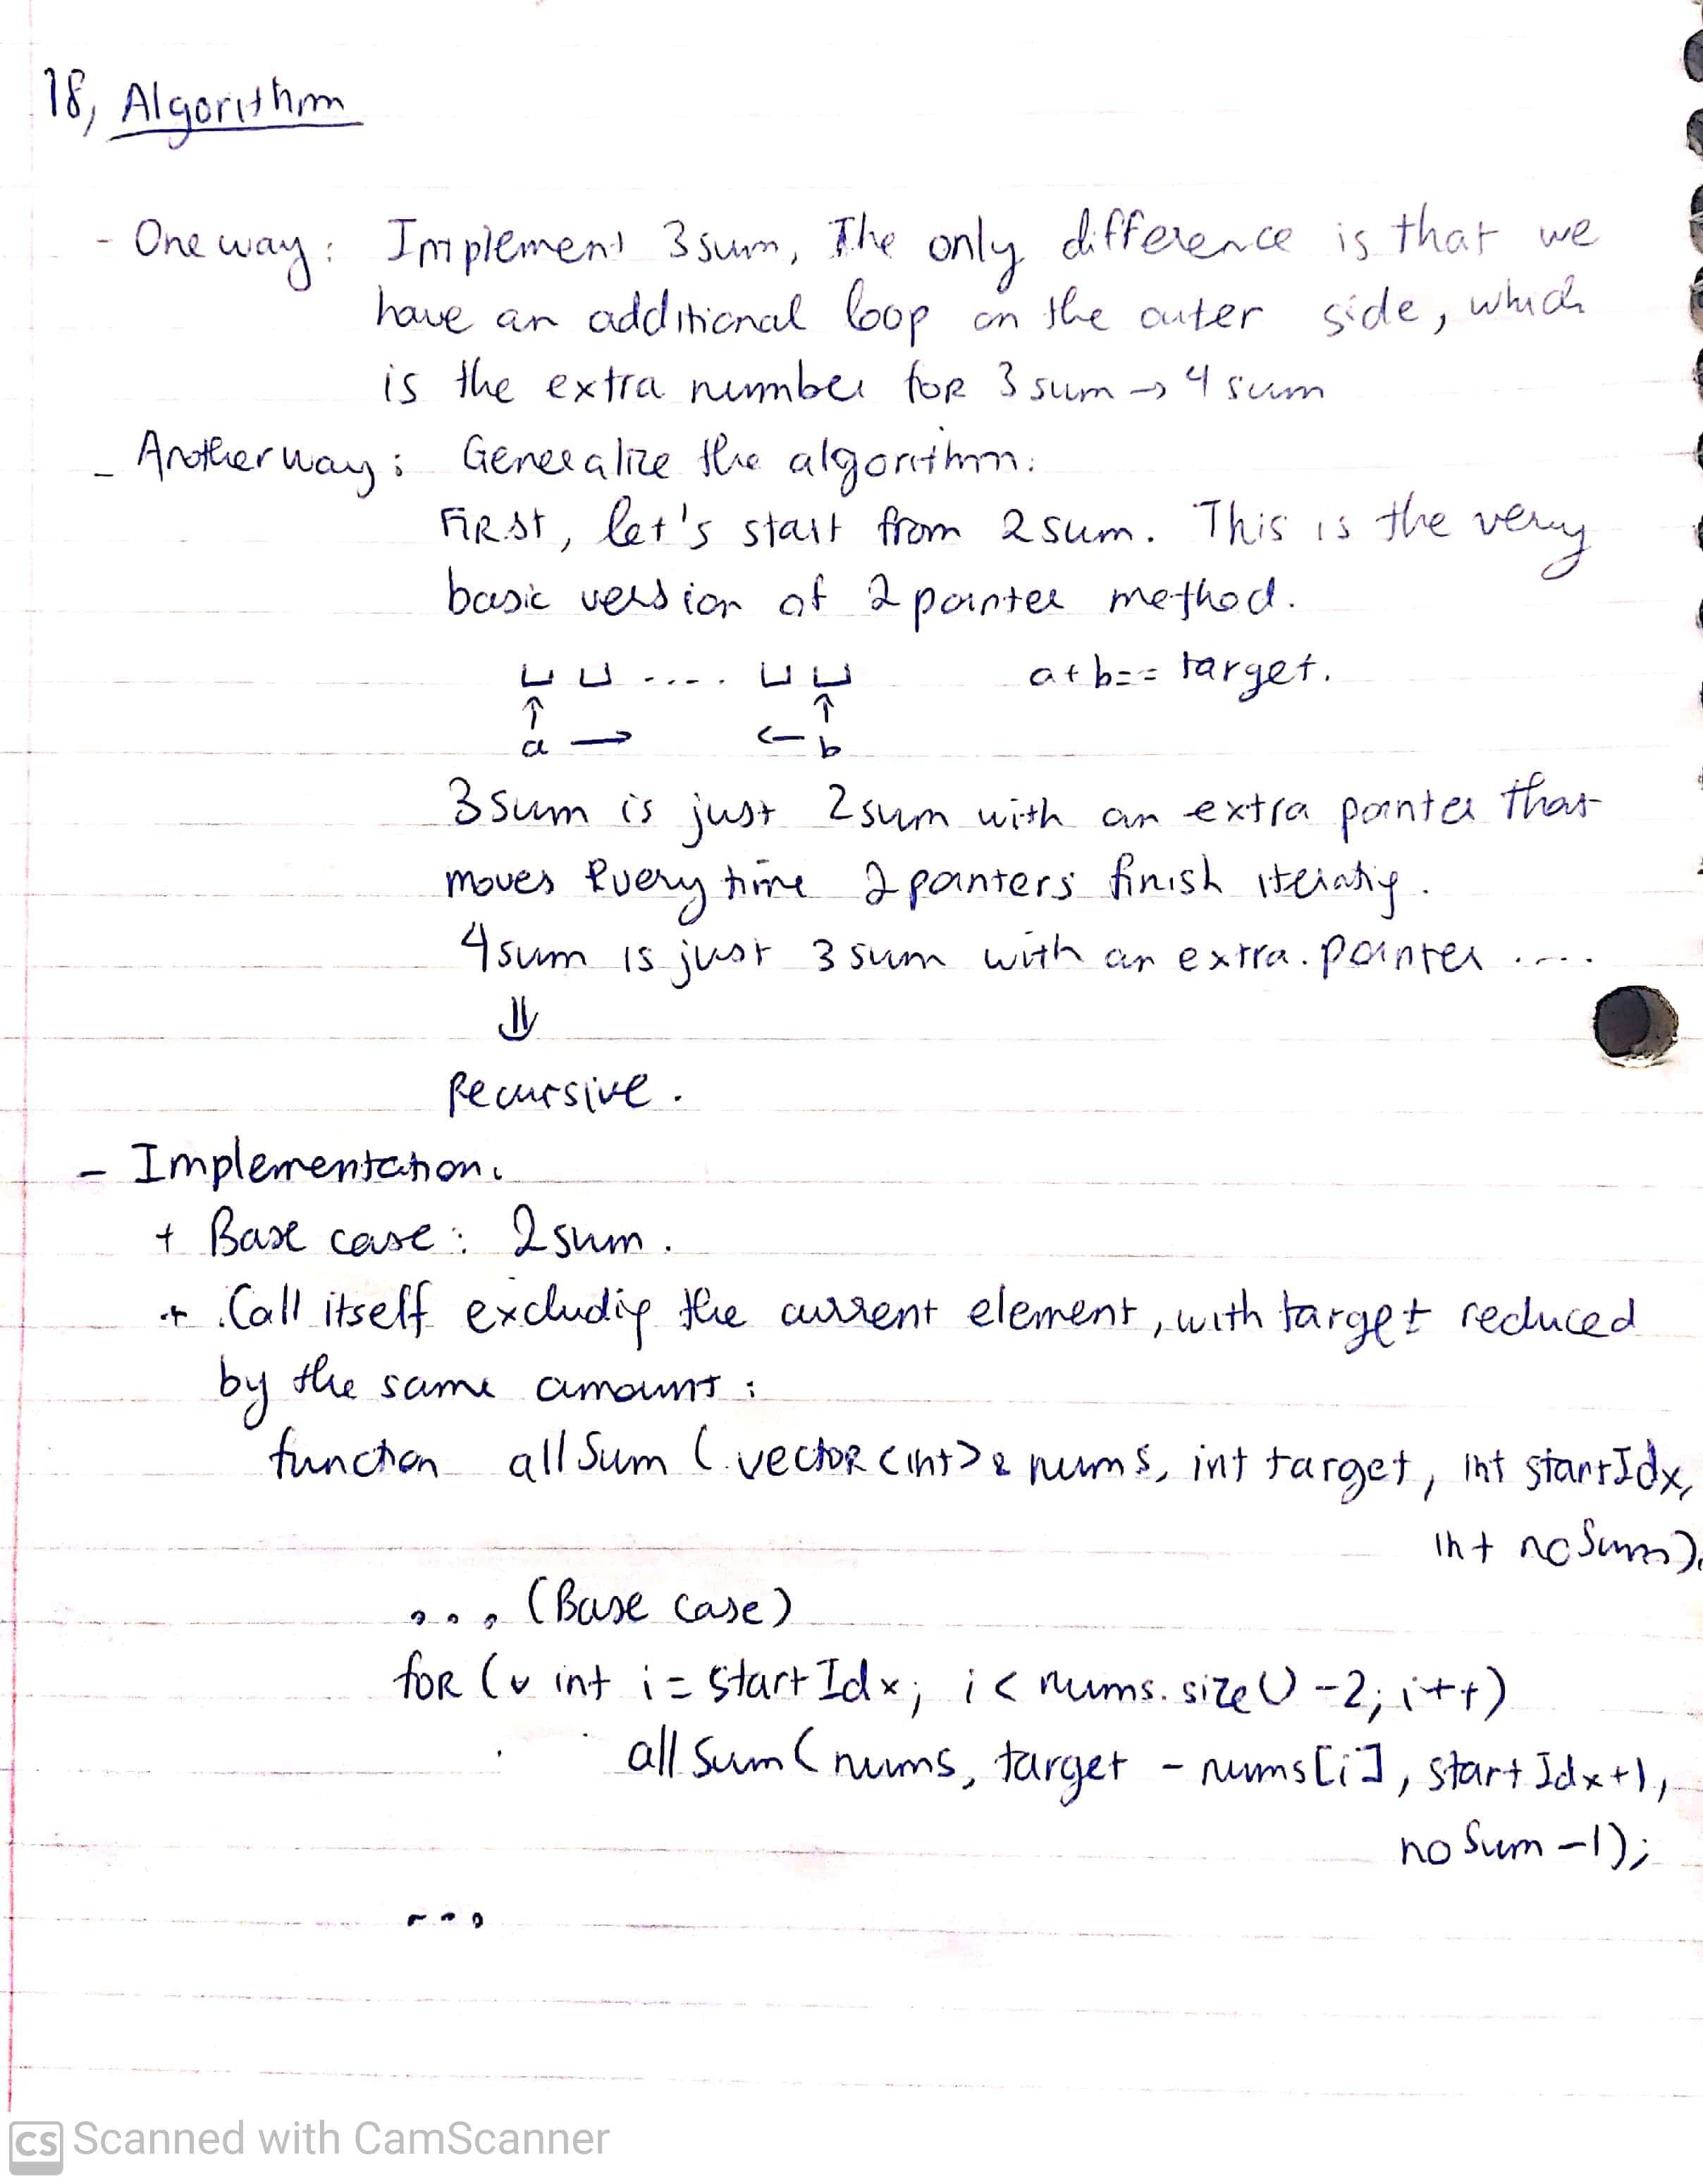 18, Algorithm
- One way: Implement 3sum, The only difference is that we
have an additional loop on the outer side, which
is the extra number for 3 sum → 4 sum
- Another way: Generalize the algorithm:
First, let's start from 2sum. This is the very
basic version of 2 pointer method.
⊔ ⊔ .... ⊔ ⊔ a+b== target.
↑ ↑
a → ← b
3sum is just 2sum with an extra pointer that
moves every time 2 pointers finish iteratig.
4sum is just 3sum with an extra pointer ....
⇓
Recursive.
- Implementation:
+ Base case: 2sum.
+ Call itself excludig the current element, with target reduced
by the same amount:
function allSum (vector<int>& nums, int target, int startIdx,
int noSum).
... (Base case)
for (int i = startIdx; i < nums.size() -2; i++)
allSum(nums, target - nums[i], startIdx+1,
noSum -1);
...
CS Scanned with CamScanner